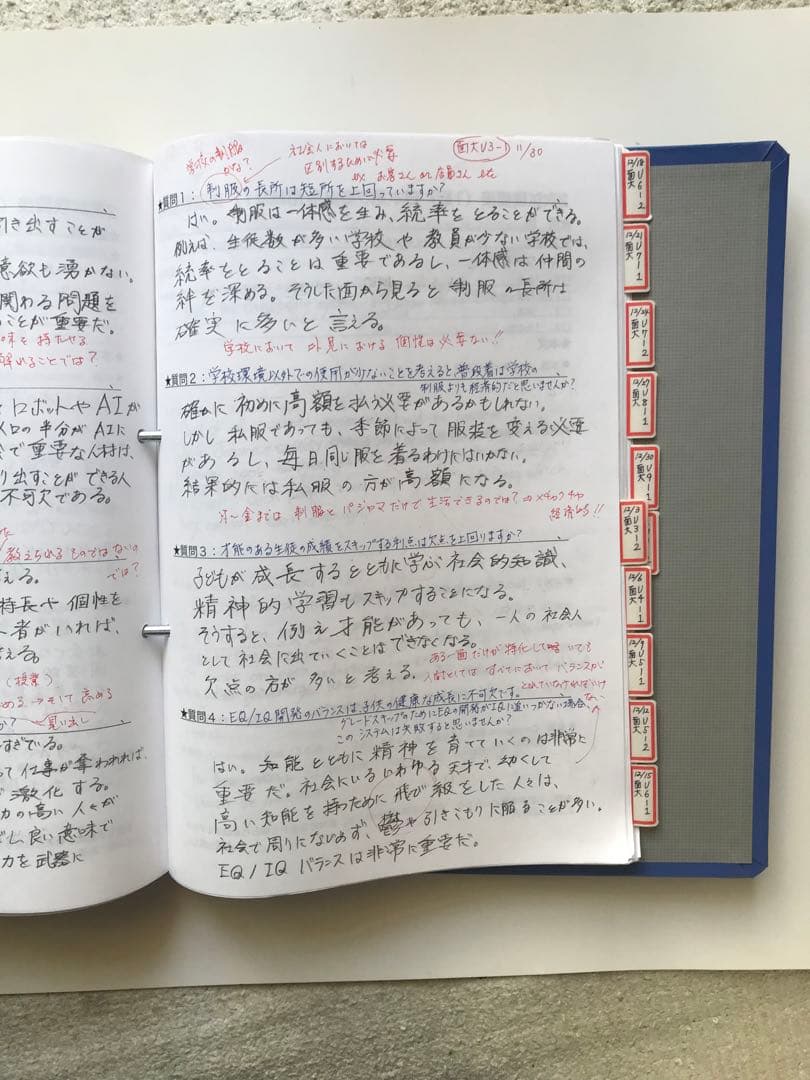 引き出すことが
意欲も湧かない。
関わる問題を
ことが重要だ。
味を持たせる
れることでは?
ロボットやAIが
の半分がAIに
で重要な人材は、
り出すことができる人
不可欠である。
教えられるものではないの
では?
える。
特長や個性を
者がいれば、
える。
(授業)
める→そして高める
か? ←見い出し
すぎている。
って仕事が奪われれば、
が激化する。
力の高い人々が
良い意味で
力を武器に
面大U3-1 11/30
学校の制服
かな?
社会人においては
区別するために必要
ex お客さん or 店員さん etc
★質問1:制服の長所は短所を上回っていますか?
はい。制服は一体感を生み、統率をとることができる。
例えば、生徒数が多い学校や教員が少ない学校では、
統率をとることは重要であるし、一体感は仲間の
絆を深める。そうした面から見ると制服の長所は
確実に多いと言える。
学校において外見における個性は必要ない!!
★質問2:学校環境以外での使用が少ないことを考えると、普段着は学校の
制服よりも経済的だと思いませんか?
確かに初めに高額を払う必要があるかもしれない。
しかし私服であっても、季節によって服装を変える必要
があるし、毎日同じ服を着るわけにはいかない。
結果的には私服の方が高額になる。
月〜金までは制服とパジャマだけで生活できるのでは?⇒メチャクチャ
経済的!!
★質問3:才能のある生徒の成績をスキップする利点は欠点を上回りますか?
子どもが成長するとともに学ぶ社会的知識、
精神的学習もスキップすることになる。
そうすると、例え才能があっても、一人の社会人
として社会に出ていくことはできなくなる。
欠点の方が多いと考える。
ある一面だけが特化して いても
人間としては すべてにおいて バランスが
とれていなければいけ
ない
★質問4:EQ/IQ開発のバランスは、子供の健康な成長に不可欠です。
グレードスキップのためにEQの開発がIQに追いつかない場合、
このシステムは失敗すると思いませんか?
はい。知能とともに精神を育てていくのは非常に
重要だ。社会にいるいわゆる天才で、幼くして
高い知能を持つために飛び級をした人々は、
社会で周りになじめず、鬱や引きこもりに服ることが多い。
EQ/IQ バランスは非常に重要だ。
12/18 面大 U6-2
12/21 面大 U7-1
12/24 面大 U7-2
12/27 面大 U8-1
12/30 面大 U9-1
12/3 面大 U3-2
12/6 面大 U4-1
12/9 面大 U5-1
12/12 面大 U5-2
12/15 面大 U6-1